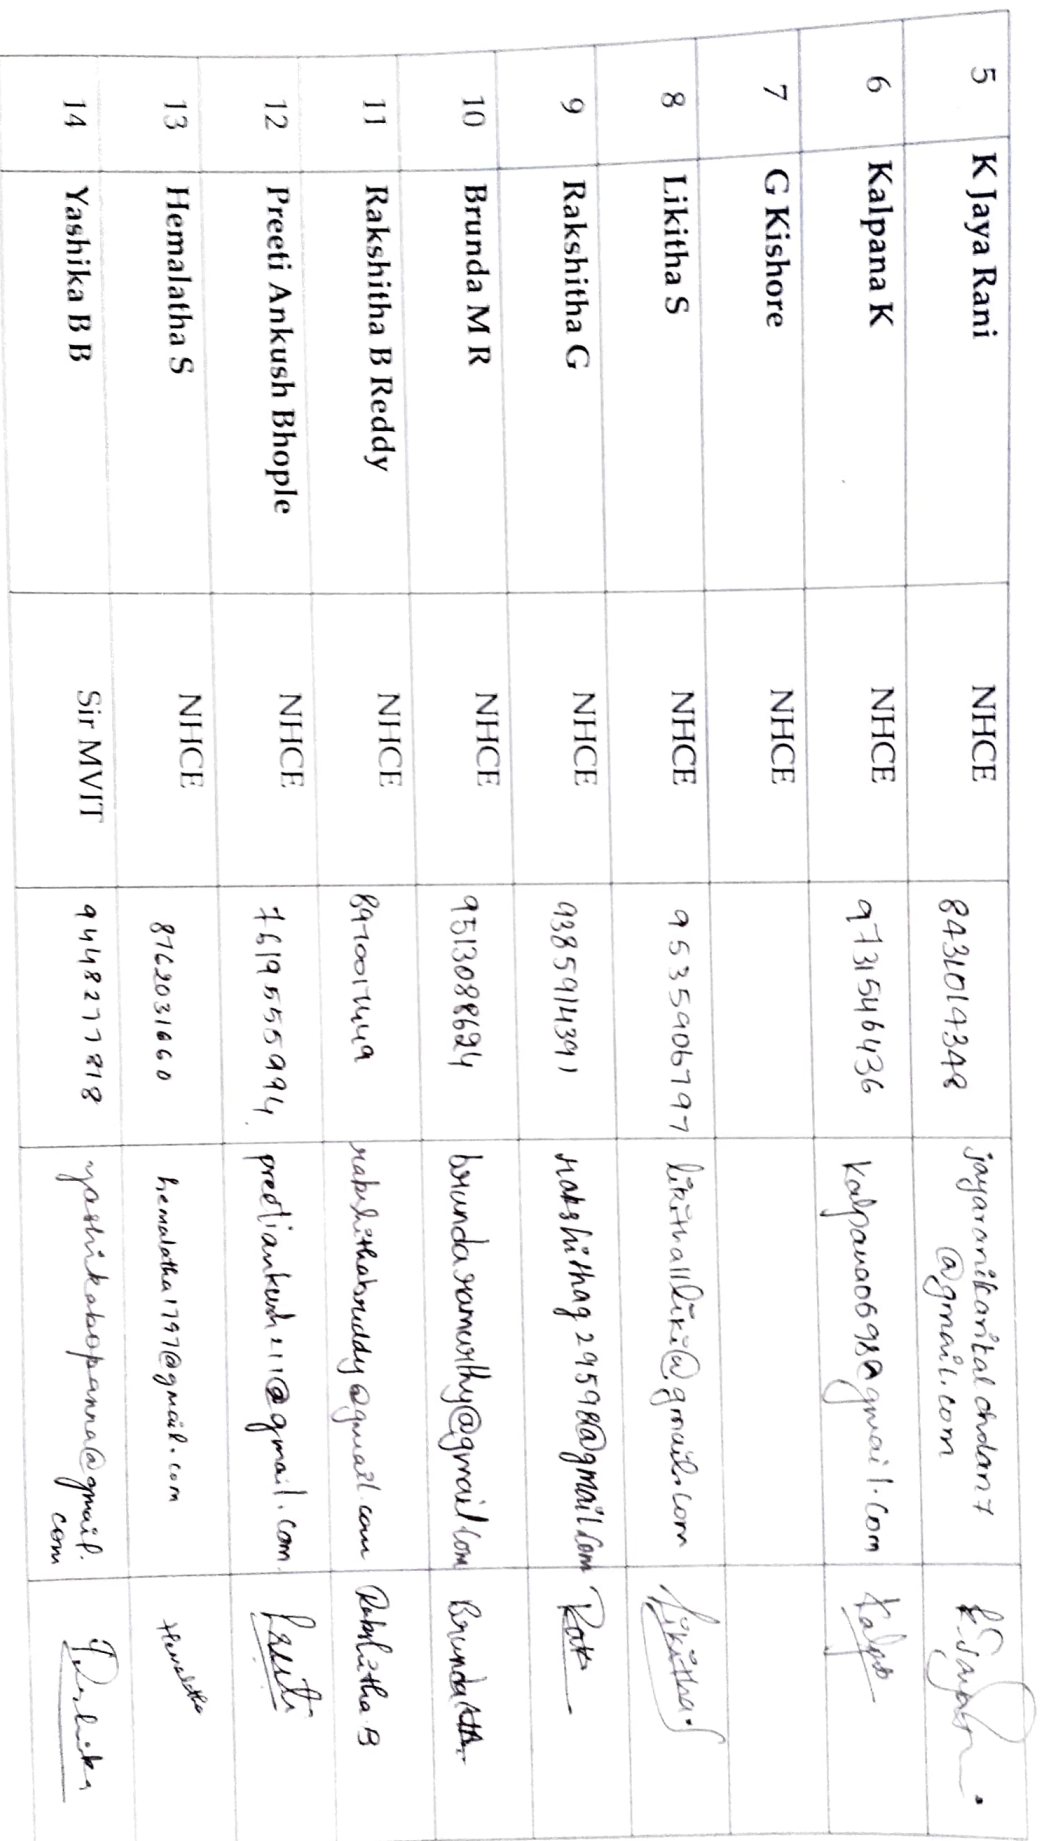 5 K Jaya Rani NHCE 8431019348 jayaranikarikalchdan7
@gmail.com
6 Kalpana K NHCE 9731546436 Kalpana0698@gmail.com Kalpa
7 G Kishore NHCE
8 Likitha S NHCE 9535906797 likithallliki@gmail.com Likitha.S
9 Rakshitha G NHCE 9385914391 rakshithag2959@gmail.com Rak
10 Brunda M R NHCE 9513088624 brundaramurthy@gmail.com Brunda
11 Rakshitha B Reddy NHCE 8970017449 rakshithabreddy@gmail.com Rakshitha B
12 Preeti Ankush Bhople NHCE 7619555994 preetiankush211@gmail.com Preeti
13 Hemalatha S NHCE 8762031660 hemalatha1797@gmail.com Hemalatha
14 Yashika B B Sir MVIT 9448277818 yashikabopanna@gmail.
com Yashika